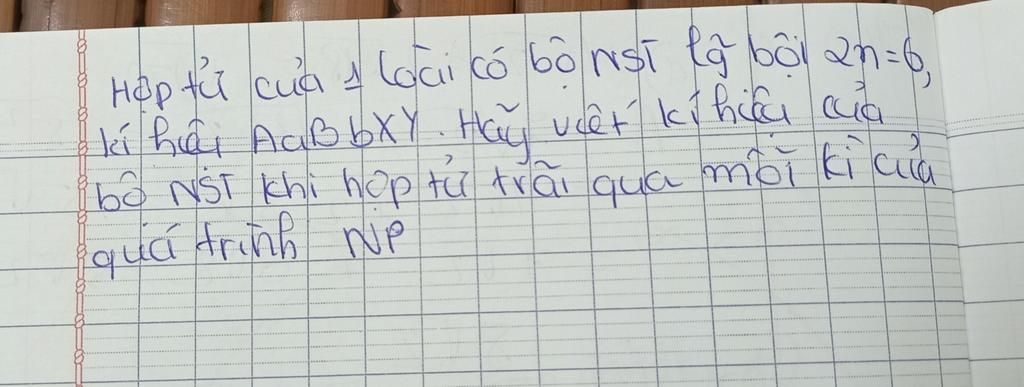 Hợp tử của 1 loài có bộ NST lg bội 2n=6,
kí hiệu AaBbXY. Hãy viết kí hiệu của
bộ NST khi hợp tử trãi qua mỗi kì của
quá trình NP